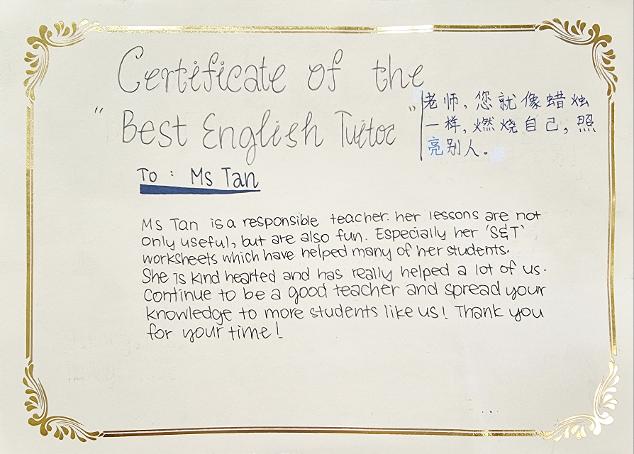 Certificate of the
" Best English Tutor "
老师，您就像蜡烛
一样，燃烧自己，照
亮别人。
To : Ms Tan
Ms Tan is a responsible teacher. her lessons are not
only useful, but are also fun. Especially her 'S&T'
worksheets which have helped many of her students.
She is kind hearted and has really helped a lot of us.
Continue to be a good teacher and spread your
knowledge to more students like us! Thank you
for your time!